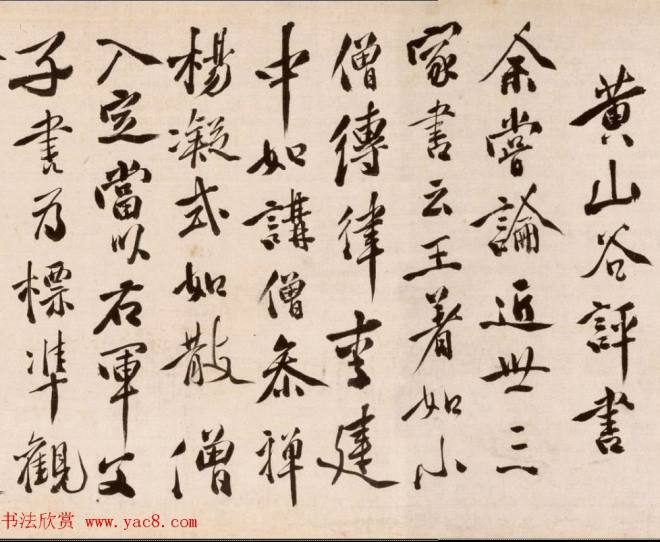 黄山谷評書
余嘗論近世三
家書云王著如小
僧縛律李建
中如講僧參禅
楊凝式如散僧
入定當以右軍父
子書為標準觀
书法欣赏 www.yac8.com